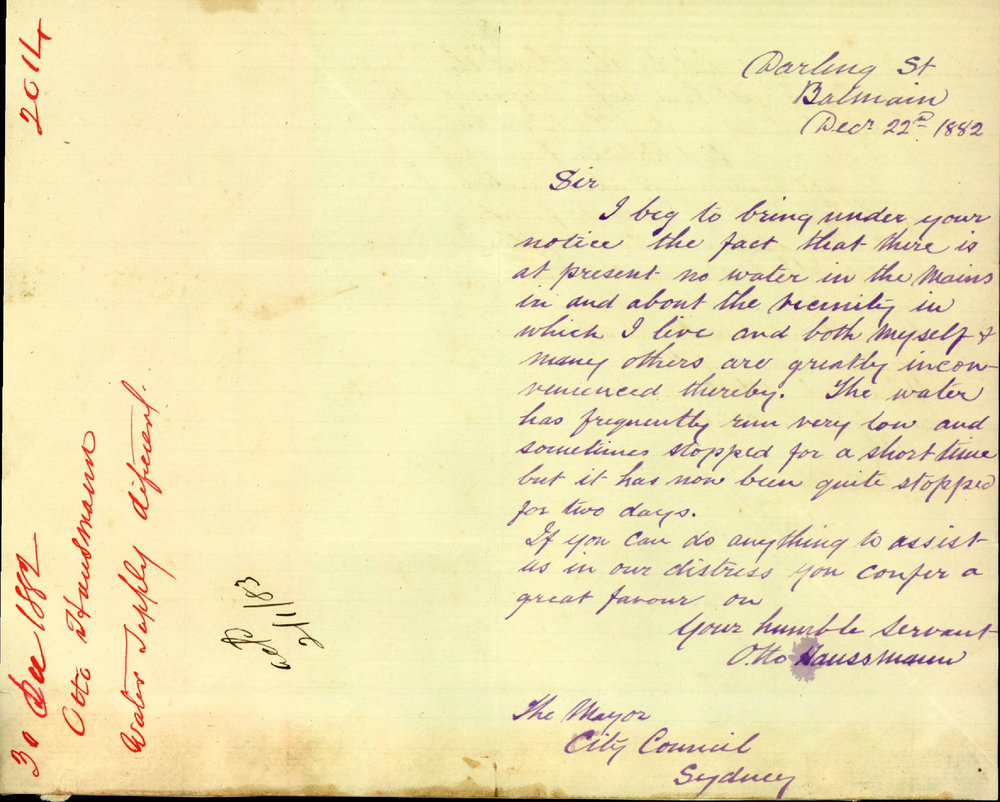 Darling St
Balmain
Decr 22nd 1882
Sir
I beg to bring under your
notice the fact that there is
at present no water in the Mains
in and about the vicinity in
which I live and both myself &
many others are greatly incon-
venienced thereby. The water
has frequently run very low and
sometimes stopped for a short time
but it has now been quite stopped
for two days.
If you can do anything to assist
us in our distress you confer a
great favour on
Your humble servant
Otto Haussmann
The Mayor
City Council
Sydney
2614
30 Dec 1882
Otto Hausmann
Water Supply dificient.
2/1/83